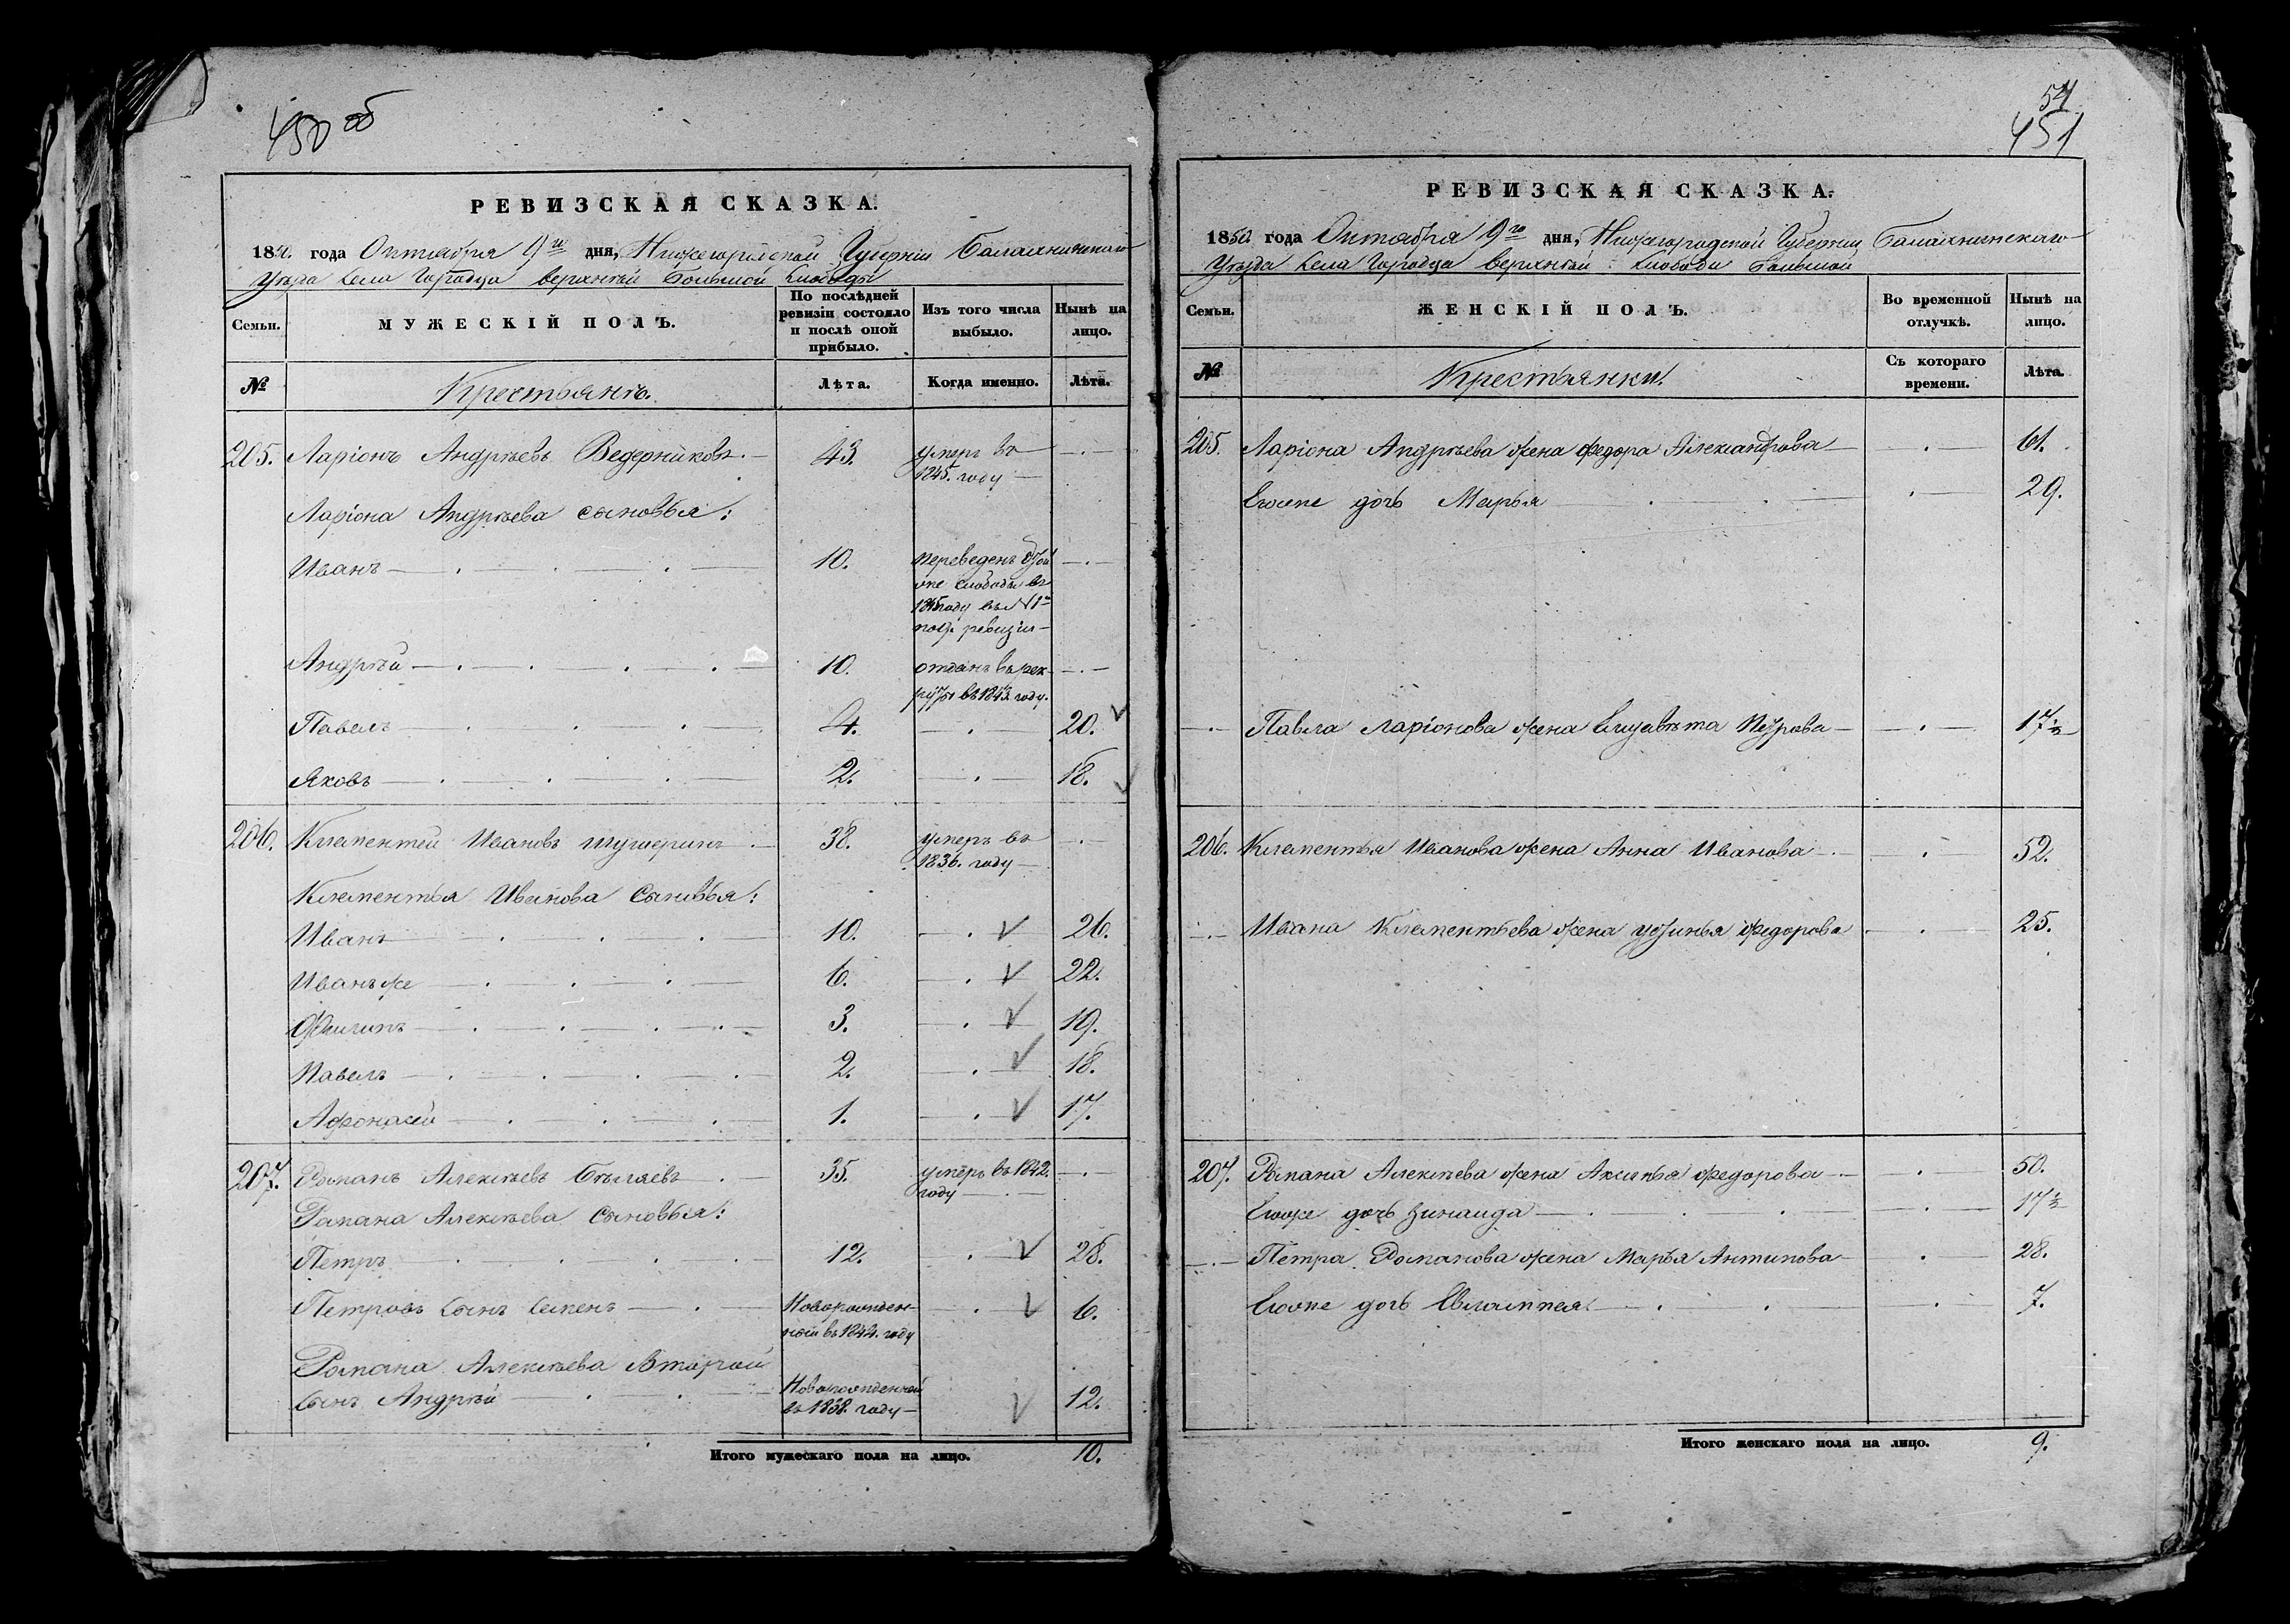 450 об
РЕВИЗСКАЯ СКАЗКА.
1850. года Октября 9го дня, Нижегородской Губерніи Балахнинскаго
Уѣзда села Городца верхнѣй Большой слободы
Семьи. МУЖЕСКІЙ ПОЛЪ. По послѣдней ревизіи состояло и послѣ оной прибыло. Изъ того числа выбыло. Нынѣ на лицо.
№ Крестьянъ. Лѣта. Когда именно. Лѣта.
205. Ларіонъ Андрѣевъ Ведерниковъ. 43. умеръ въ
1845. году
Ларіона Андрѣева сыновья:
Иванъ 10. переведенъ
же слободы въ
1845 году въ №
ревизіи
Андрѣй 10. отданъ въ рек-
руты въ 1843. году.
Павелъ 4. 20.
Яковъ 2. 18.
206. Климентей Ивановъ Шушеринъ 38. умеръ въ
1836. году
Климентья Иванова сыновья:
Иванъ 10. 26.
Иванъ же 6. 22.
Филипъ 3. 19.
Павелъ 2. 18.
Афонасей 1. 17.
207. Романъ Алексѣевъ Бѣляевъ 35. умеръ въ 1842.
году
Романа Алексѣева сыновья:
Петръ 12. 28.
Петровъ сынъ Семенъ Новорожден-
ной въ 1844. году 6.
Романа Алексѣева второй
сынъ Андрѣй Новорожденной
въ 1838. году 12.
Итого мужескаго пола на лицо. 10.
54
451
РЕВИЗСКАЯ СКАЗКА.
1850 года Октября 9го дня, Нижегородской Губерніи Балахнинскаго
Уѣзда села Городца верхнѣй слободы Большой
Семьи. ЖЕНСКІЙ ПОЛЪ. Во временной отлучкѣ. Нынѣ на лицо.
№ Крестьянки. Съ котораго времени. Лѣта.
205. Ларіона Андрѣева жена Федора Александрова 61.
Егоже дочь Марья 29.
Павла Ларіонова жена Елизавѣта Петрова 17 ½
206. Климентья Иванова жена Анна Иванова 52.
Ивана Климентьева жена Устинья Федорова 25.
207. Романа Алексѣева жена Аксинья Федорова 50.
Егоже дочь Зинаида 17 ½
Петра Романова жена Марья Антипова 28.
Егоже дочь Евлампея 7.
Итого женскаго пола на лицо. 9.